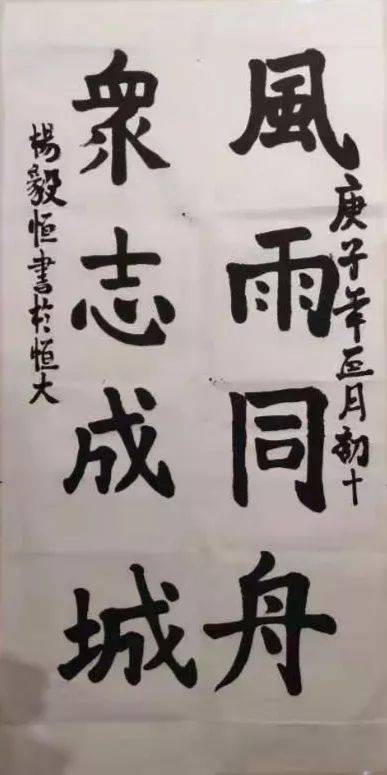 庚子年正月初十
風雨同舟
衆志成城
楊毅恒書於恒大